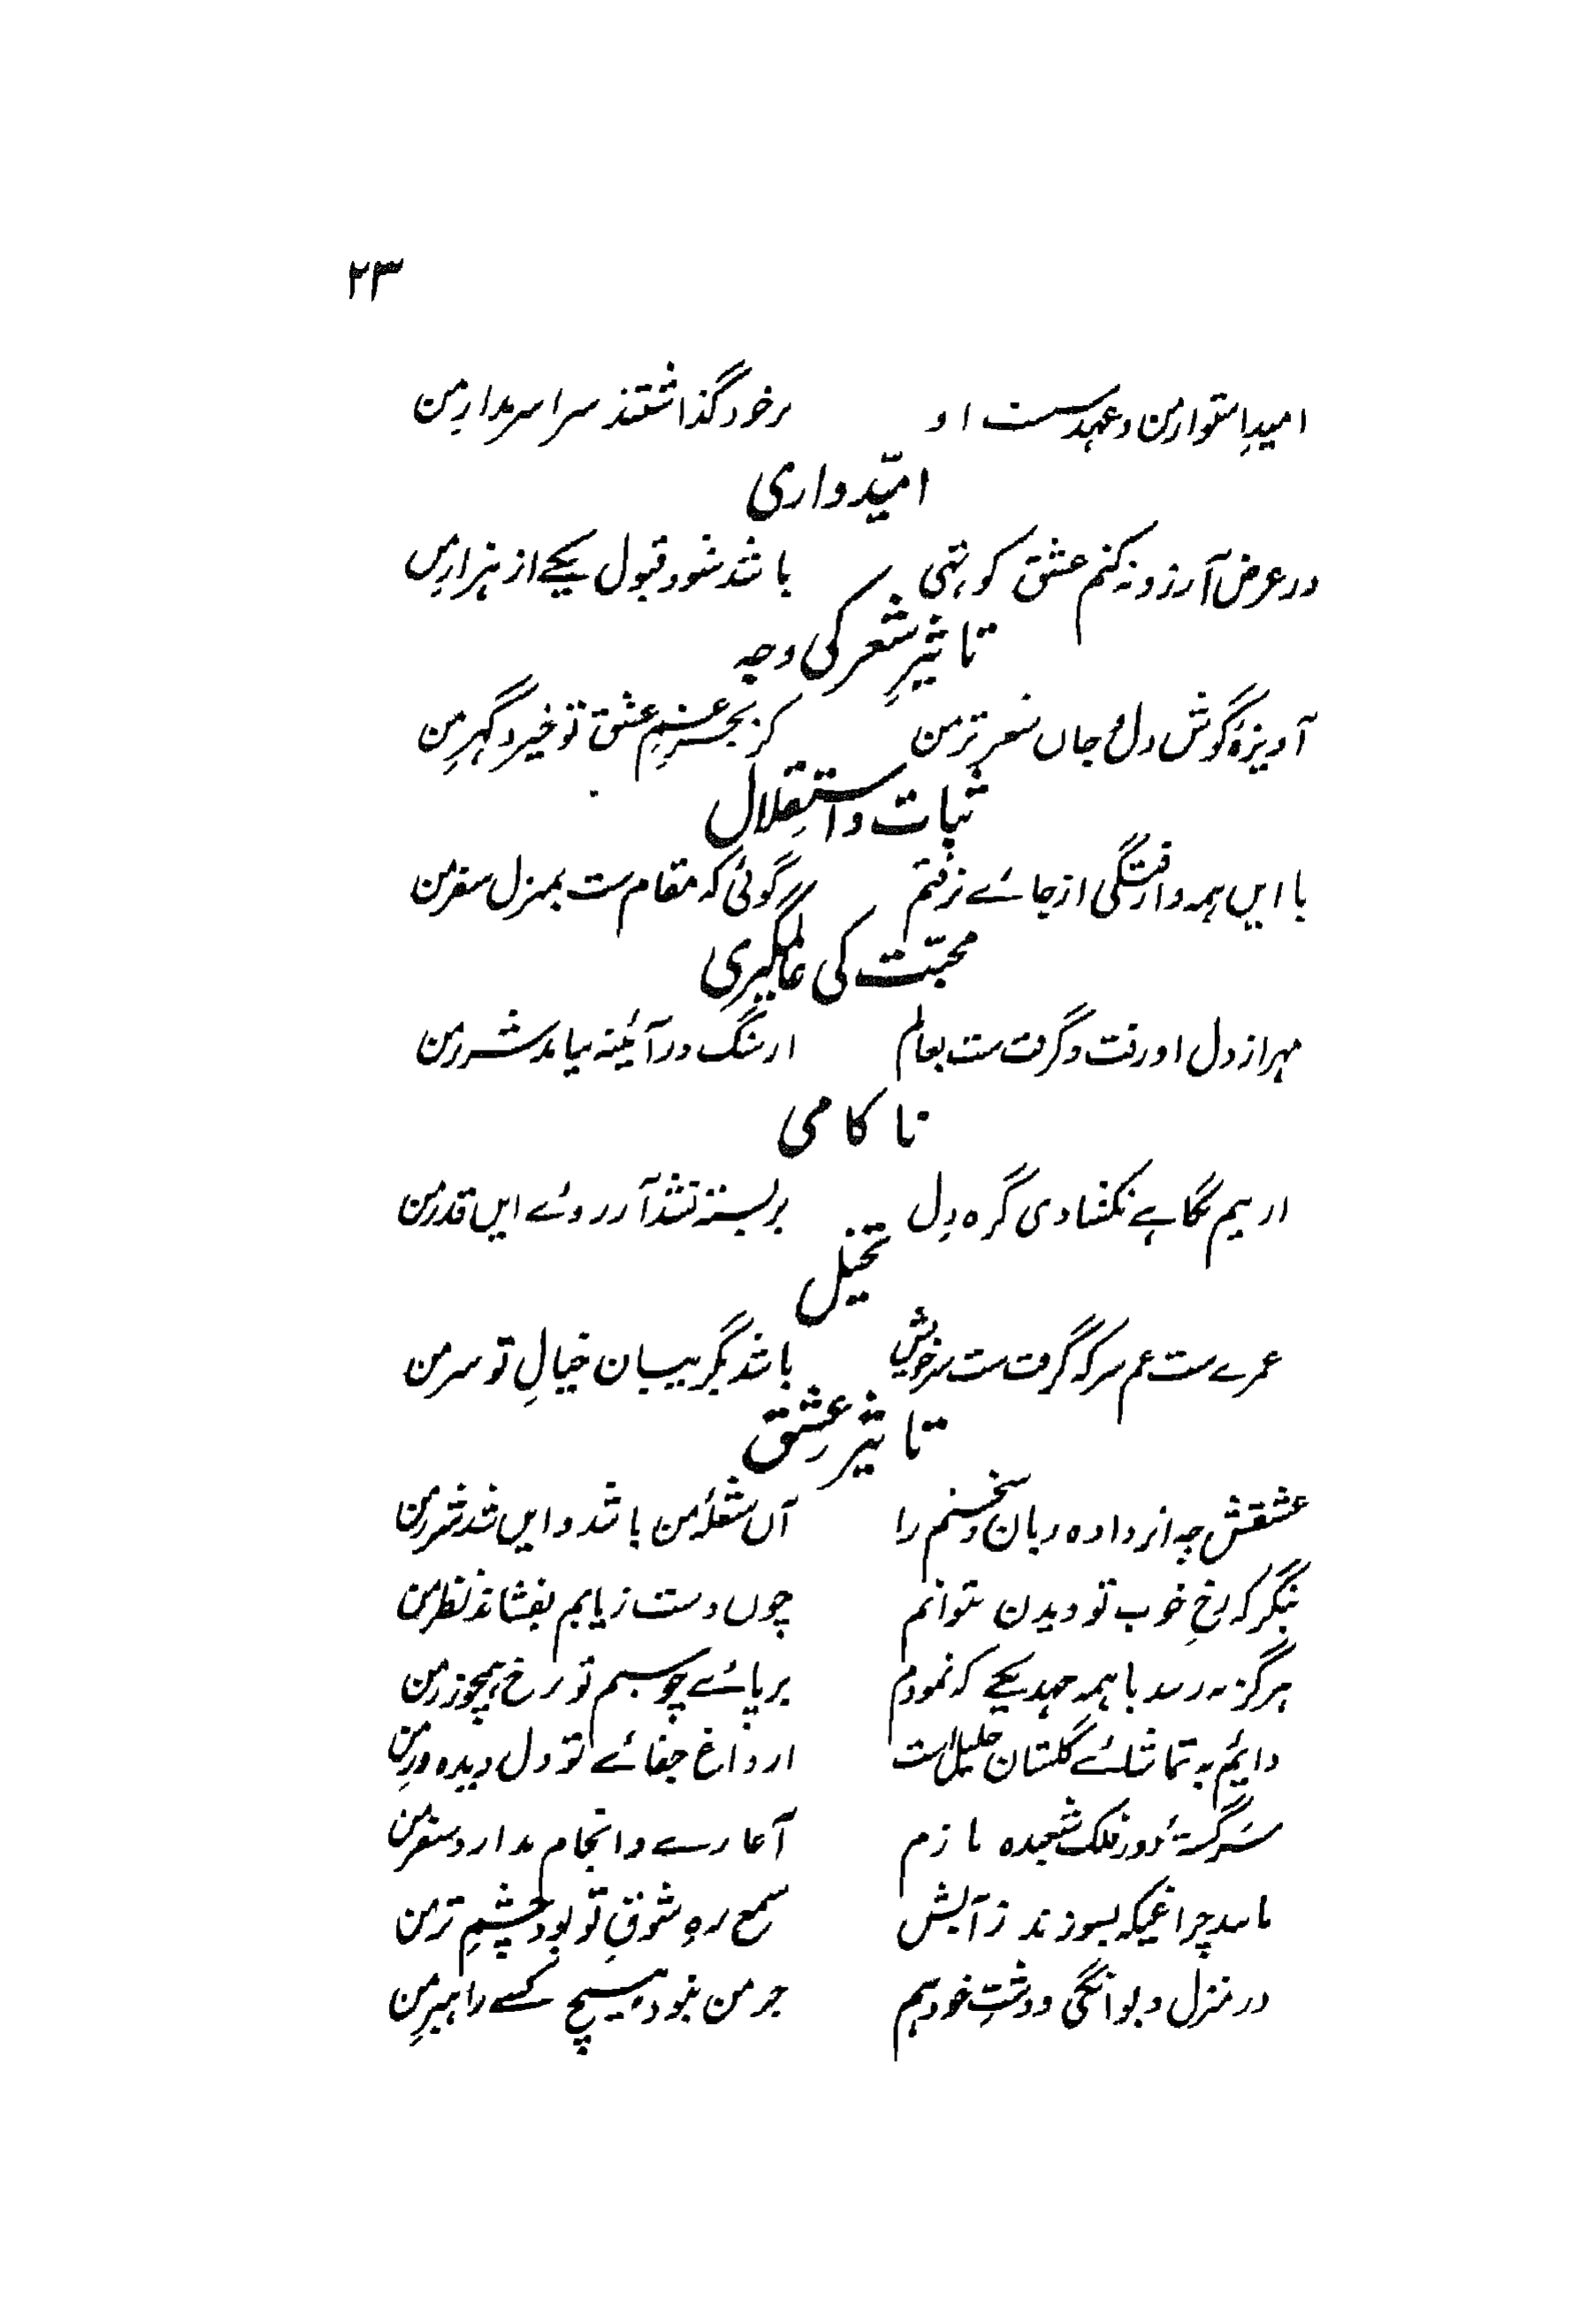 ۲۳
امیدِ استوار من و عہد سست او برخود گذاشتند سراسر مدارِ من
امیّدواری
در عرض آرزو نہ کنم عشق کوتہی باشد شود قبول یکے از ہزارِ من
تاثیرِ شعر کی وجہ
آویزۂ گوش دل و جاں شعرِ ترِ من کز بحرِ غمِ عشق تو خیزد گہرِ من
ثبات و استقلال
با ایں ہمہ وارفتگی از جائے نرفتم گوئی کہ مقام ست بمنزل سفر من
محبّت کی عالمگیری
مہر از دل او رفت و گرفت ست بعالم از سنگ در آئینہ بیامد شررِ من
ناکامی
از نیم نگاہے نکشادی گرہ دل بر بستہ نشد آرزوئے ایں قدر من
تخیل
عمرے ست غم ہر کہ گرفت ست سرِ خویش باشد بگریبان خیالِ تو سر من
تاثیر عشق
عشقش چہ اثر داده زبان و سخنم را آں شعلۂ من باشد و ایں شد شررِ من
بنگر کہ رخِ خوب تو دیدن نتوانم چوں دست ز پایم بفشاند نظر من
ہرگز نہ رسد با ہمہ جہد یکے کہ نمودم بر پائے چو سیم تو رخ ہمچو زر من
دائم بہ تماشائے گلستان خلیل است از داغ جفائے تو دل دیدہ ورِ من
سرگشتۂ دور فلک شعبدہ بازم آغازے و انجام ندارد سفر من
مانند چراغیکہ بسوزند ز آبش شمع رہِ شوقِ تو بود چشمِ تر من
در منزل دیوانگی و دشتِ خودیم جز من نبود ہیچ کسے راہبرِ من